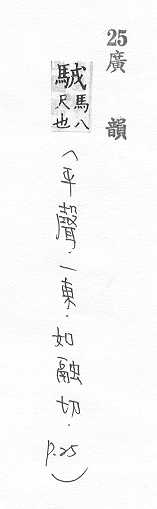 25廣韻
駥馬八尺也(平聲·一東·如融切·p.25)